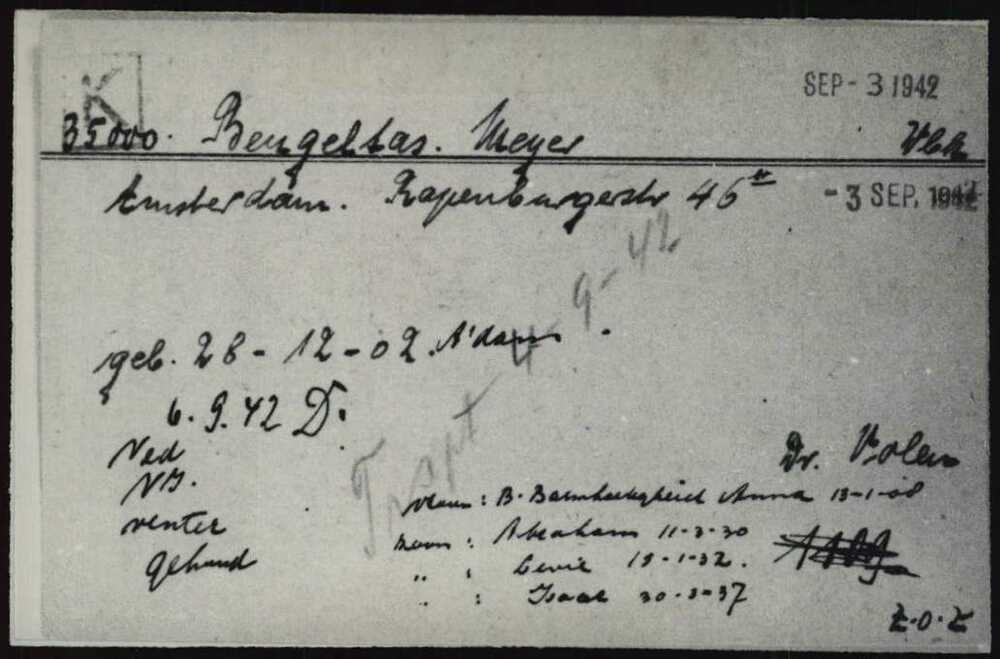 K
SEP - 3 1942
35000. Beugeltas. Meyer
Amsterdam. Rapenburgerstr 46
- 3 SEP. 1942
geb. 28 - 12 - 02. A'dam.
6. 9. 42 D.
Trspt 4 9 - 42
Ned
NI.
venter
gehuwd
Dr. Polen
Vrouw: B. Anna 13-1-08
zoon: Abraham 11-3-30
" : Levie 15-1-32.
" : Isaac 30-3-37
Z.O.Z